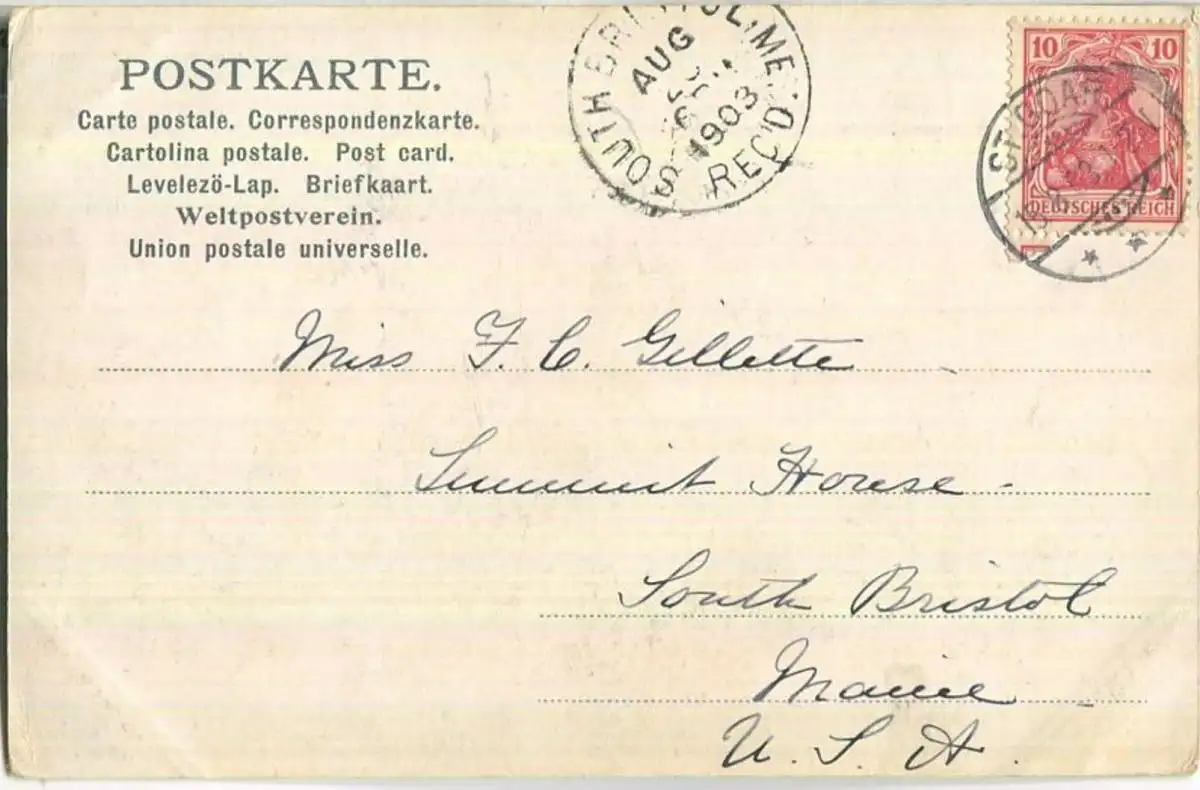 POSTKARTE.
Carte postale. Correspondenzkarte.
Cartolina postale. Post card.
Levelezö-Lap. Briefkaart.
Weltpostverein.
Union postale universelle.
SOUTH BRISTOL, ME.
AUG
1903
REC'D.
10 10
DEUTSCHES REICH
ST. GOAR
Miss F. C. Gillette
Summit House -
South Bristol
Maine
U. S. A.